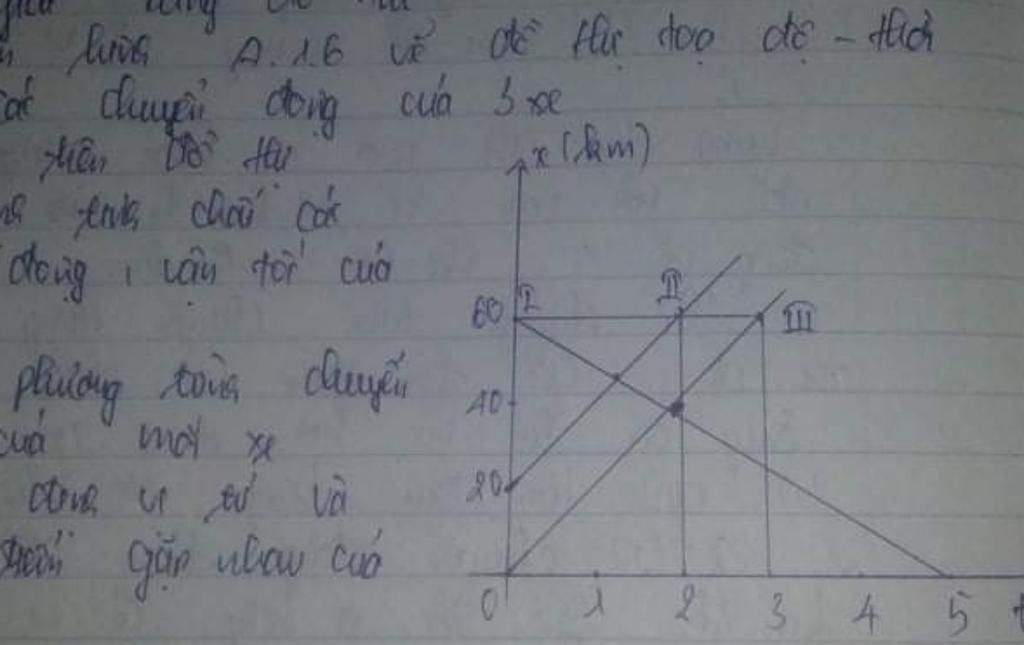 A.1.6 vẽ đồ thị toạ độ - thời
chuyển động của 3 xe
trên đồ thị
x (km)
tính chất các
động, vận tốc của
60 I II III
phương trình chuyển
40
của mỗi xe
20
định vị trí và
gặp nhau của
0 1 2 3 4 5 t